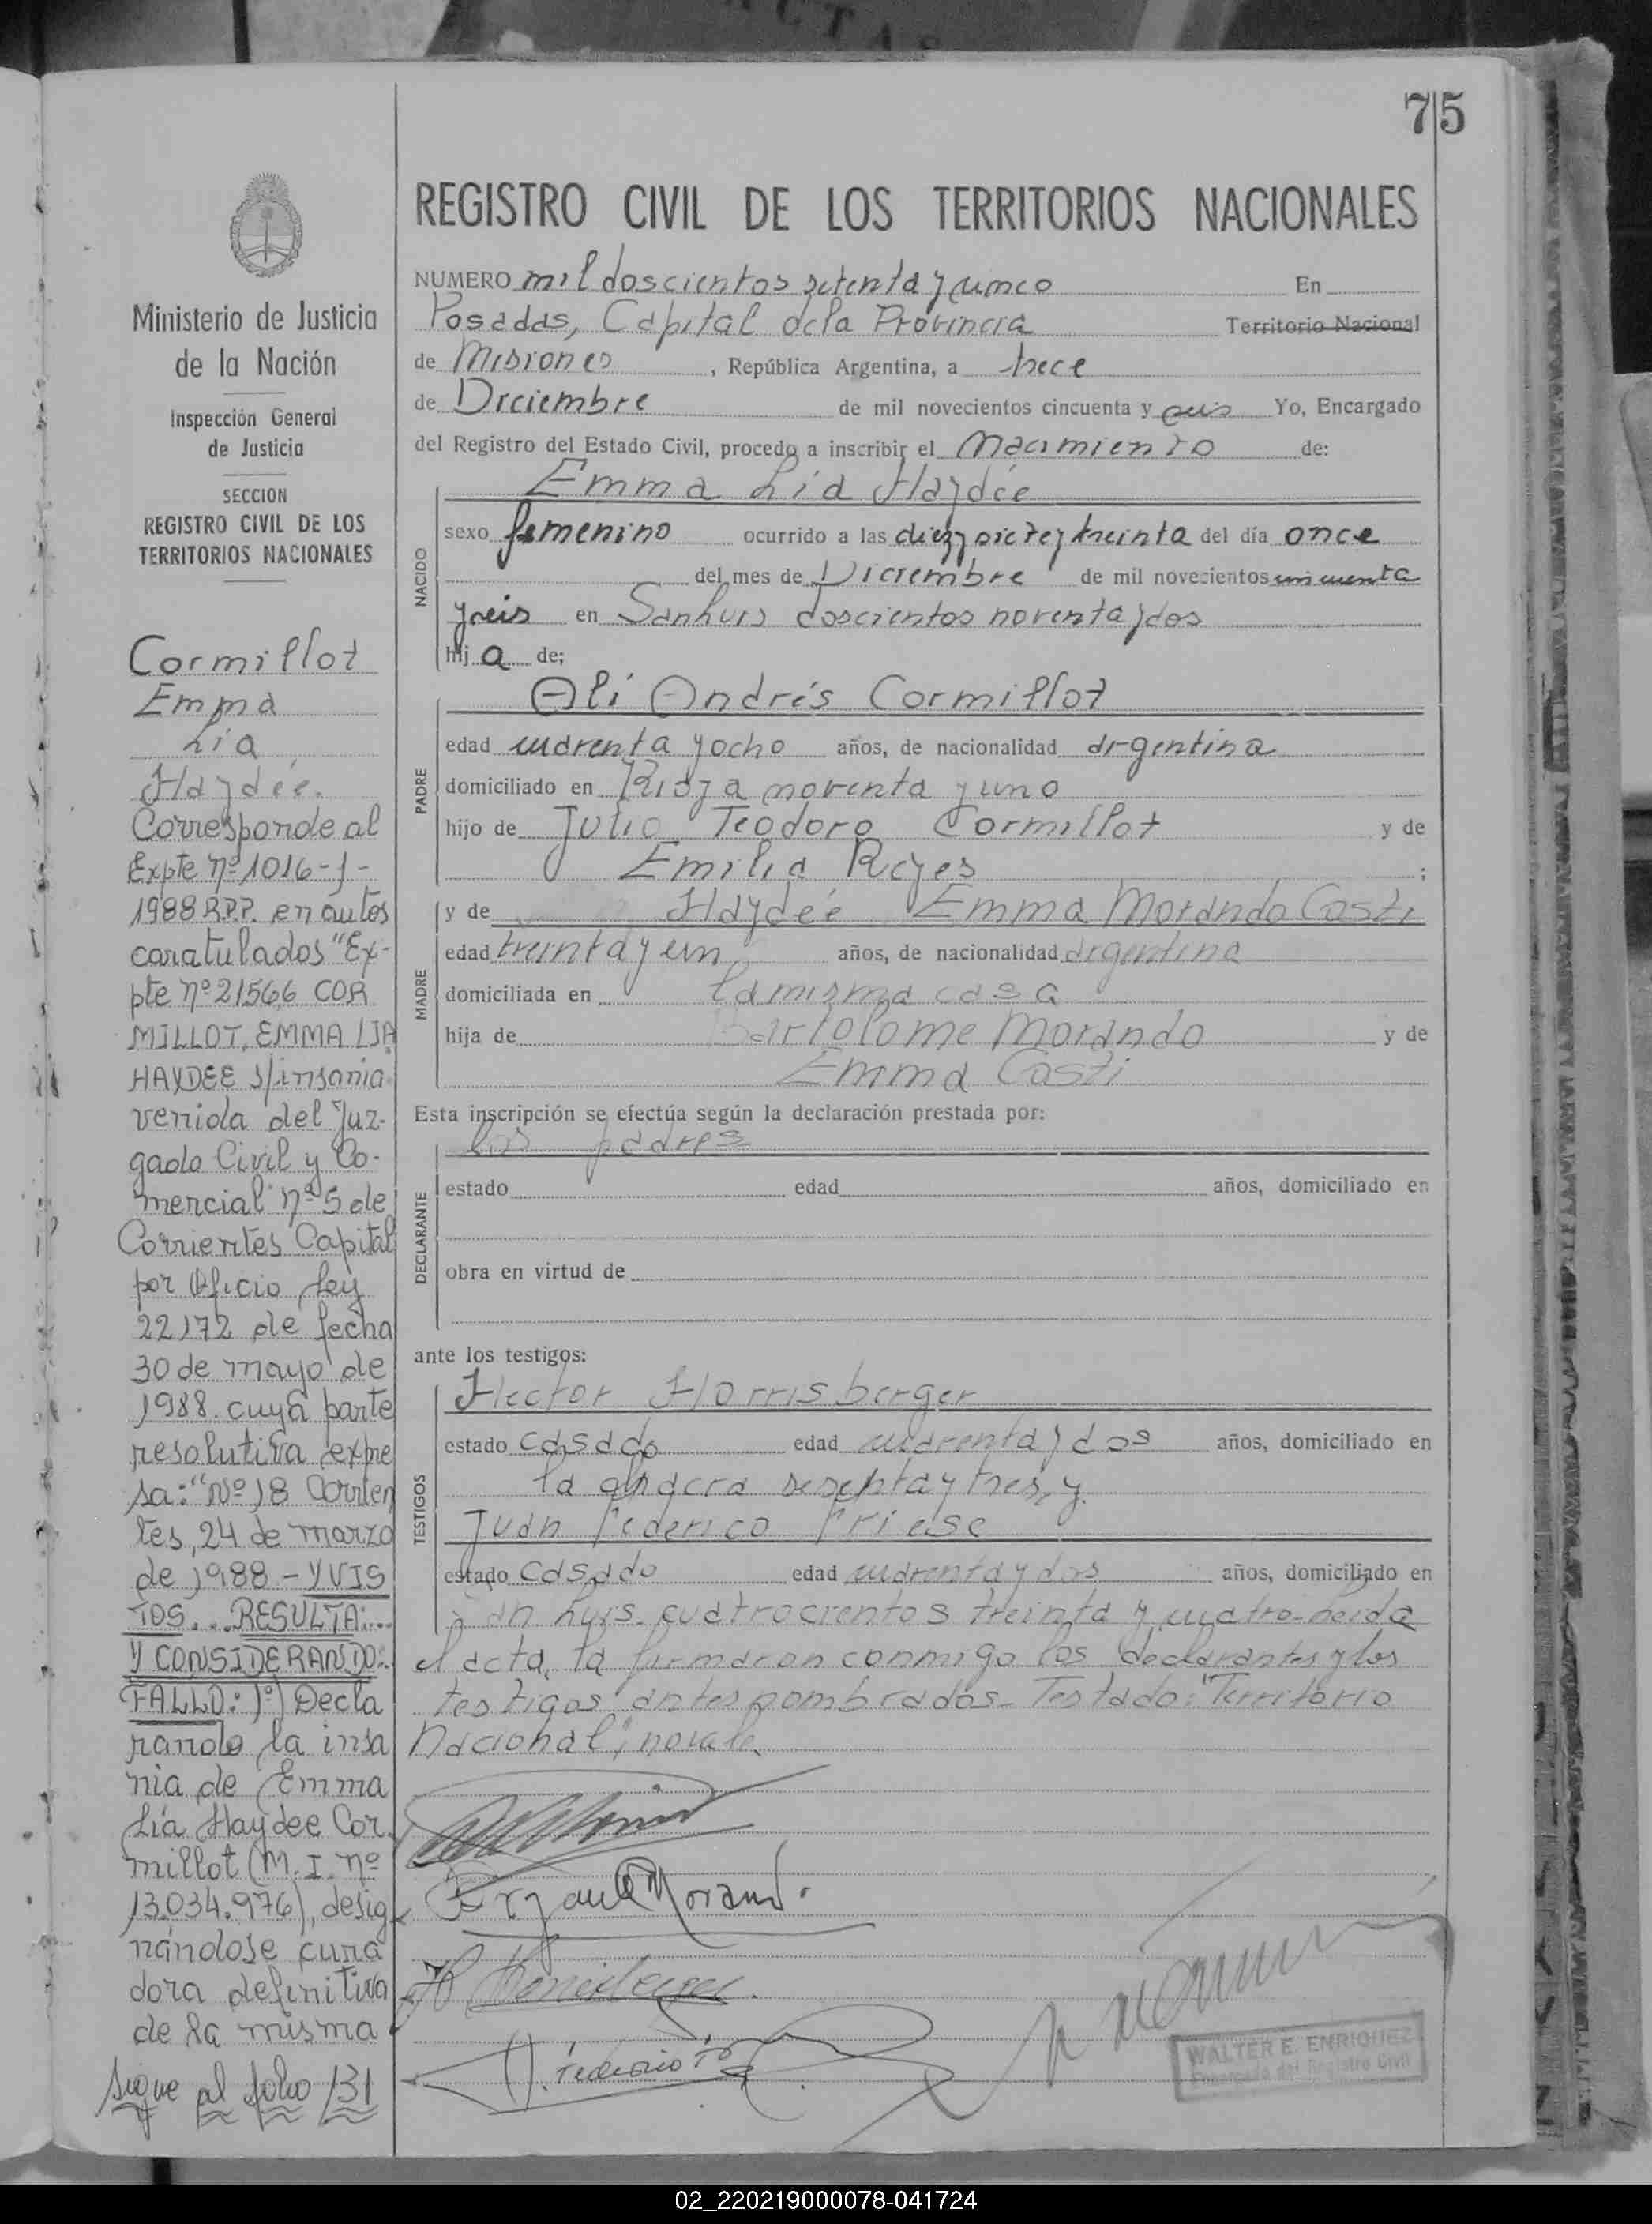 CTAS
75
REGISTRO CIVIL DE LOS TERRITORIOS NACIONALES
Ministerio de Justicia
de la Nación
Inspección General
de Justicia
SECCION
REGISTRO CIVIL DE LOS
TERRITORIOS NACIONALES
Cormillot
Emma
Lía
Haydée.
Corresponde al
Expte nº 1016-J-
1988 R.P.P. en autos
caratulados "Ex-
pte nº 21566 COR
MILLOT, EMMA LIA
HAYDEE s/insania
venida del Juz-
gado Civil y Co-
mercial nº 5 de
Corrientes Capital
por Oficio Ley
22172 de fecha
30 de mayo de
1988. cuya parte
resolutiva expre
sa: "Nº 18 Corrien
tes, 24 de marzo
de 1988 - Y VIS
TOS... RESULTA:...
Y CONSIDERANDO:.
FALLO: 1º) Decla
rando la insa
nia de Emma
Lía Haydee Cor
millot (M. I. nº
13.034.976), desig
nándose cura
dora definitiva
de la misma
sigue al folio 131
NUMERO mil doscientos setenta y cinco En
Posadas, Capital de la Provincia Territorio Nacional
de Misiones, República Argentina, a trece
de Diciembre de mil novecientos cincuenta y seis Yo, Encargado
del Registro del Estado Civil, procedo a inscribir el Nacimiento de:
NACIDO
Emma Lía Haydée
sexo femenino ocurrido a las diez y siete y treinta del día once
del mes de Diciembre de mil novecientos cincuenta
y seis en San Luis doscientos noventa y dos
hija de;
PADRE
Alí Andrés Cormillot
edad cuarenta y ocho años, de nacionalidad argentina
domiciliado en Rioja noventa y uno
hijo de Julio Teodoro Cormillot y de
Emilia Reyes;
MADRE
y de Haydeé Emma Morando Costi
edad treinta y un años, de nacionalidad argentina
domiciliada en la misma casa
hija de Bartolome Morando y de
Emma Costi
Esta inscripción se efectúa según la declaración prestada por:
DECLARANTE
los padres
estado edad años, domiciliado en
obra en virtud de
ante los testigos:
TESTIGOS
Hector
estado casado edad cuarenta y dos años, domiciliado en
la sesenta y tres, y
Juan Federico Friese
estado casado edad cuarenta y dos años, domiciliado en
San Luis cuatrocientos treinta y cuatro- Leída
el acta, la firmaron conmigo los declarantes y los
testigos antes nombrados- Testado: "Territorio
Nacional", no vale.
WALTER E. ENRIQUEZ
Encargado del Registro Civil
02_220219000078-041724